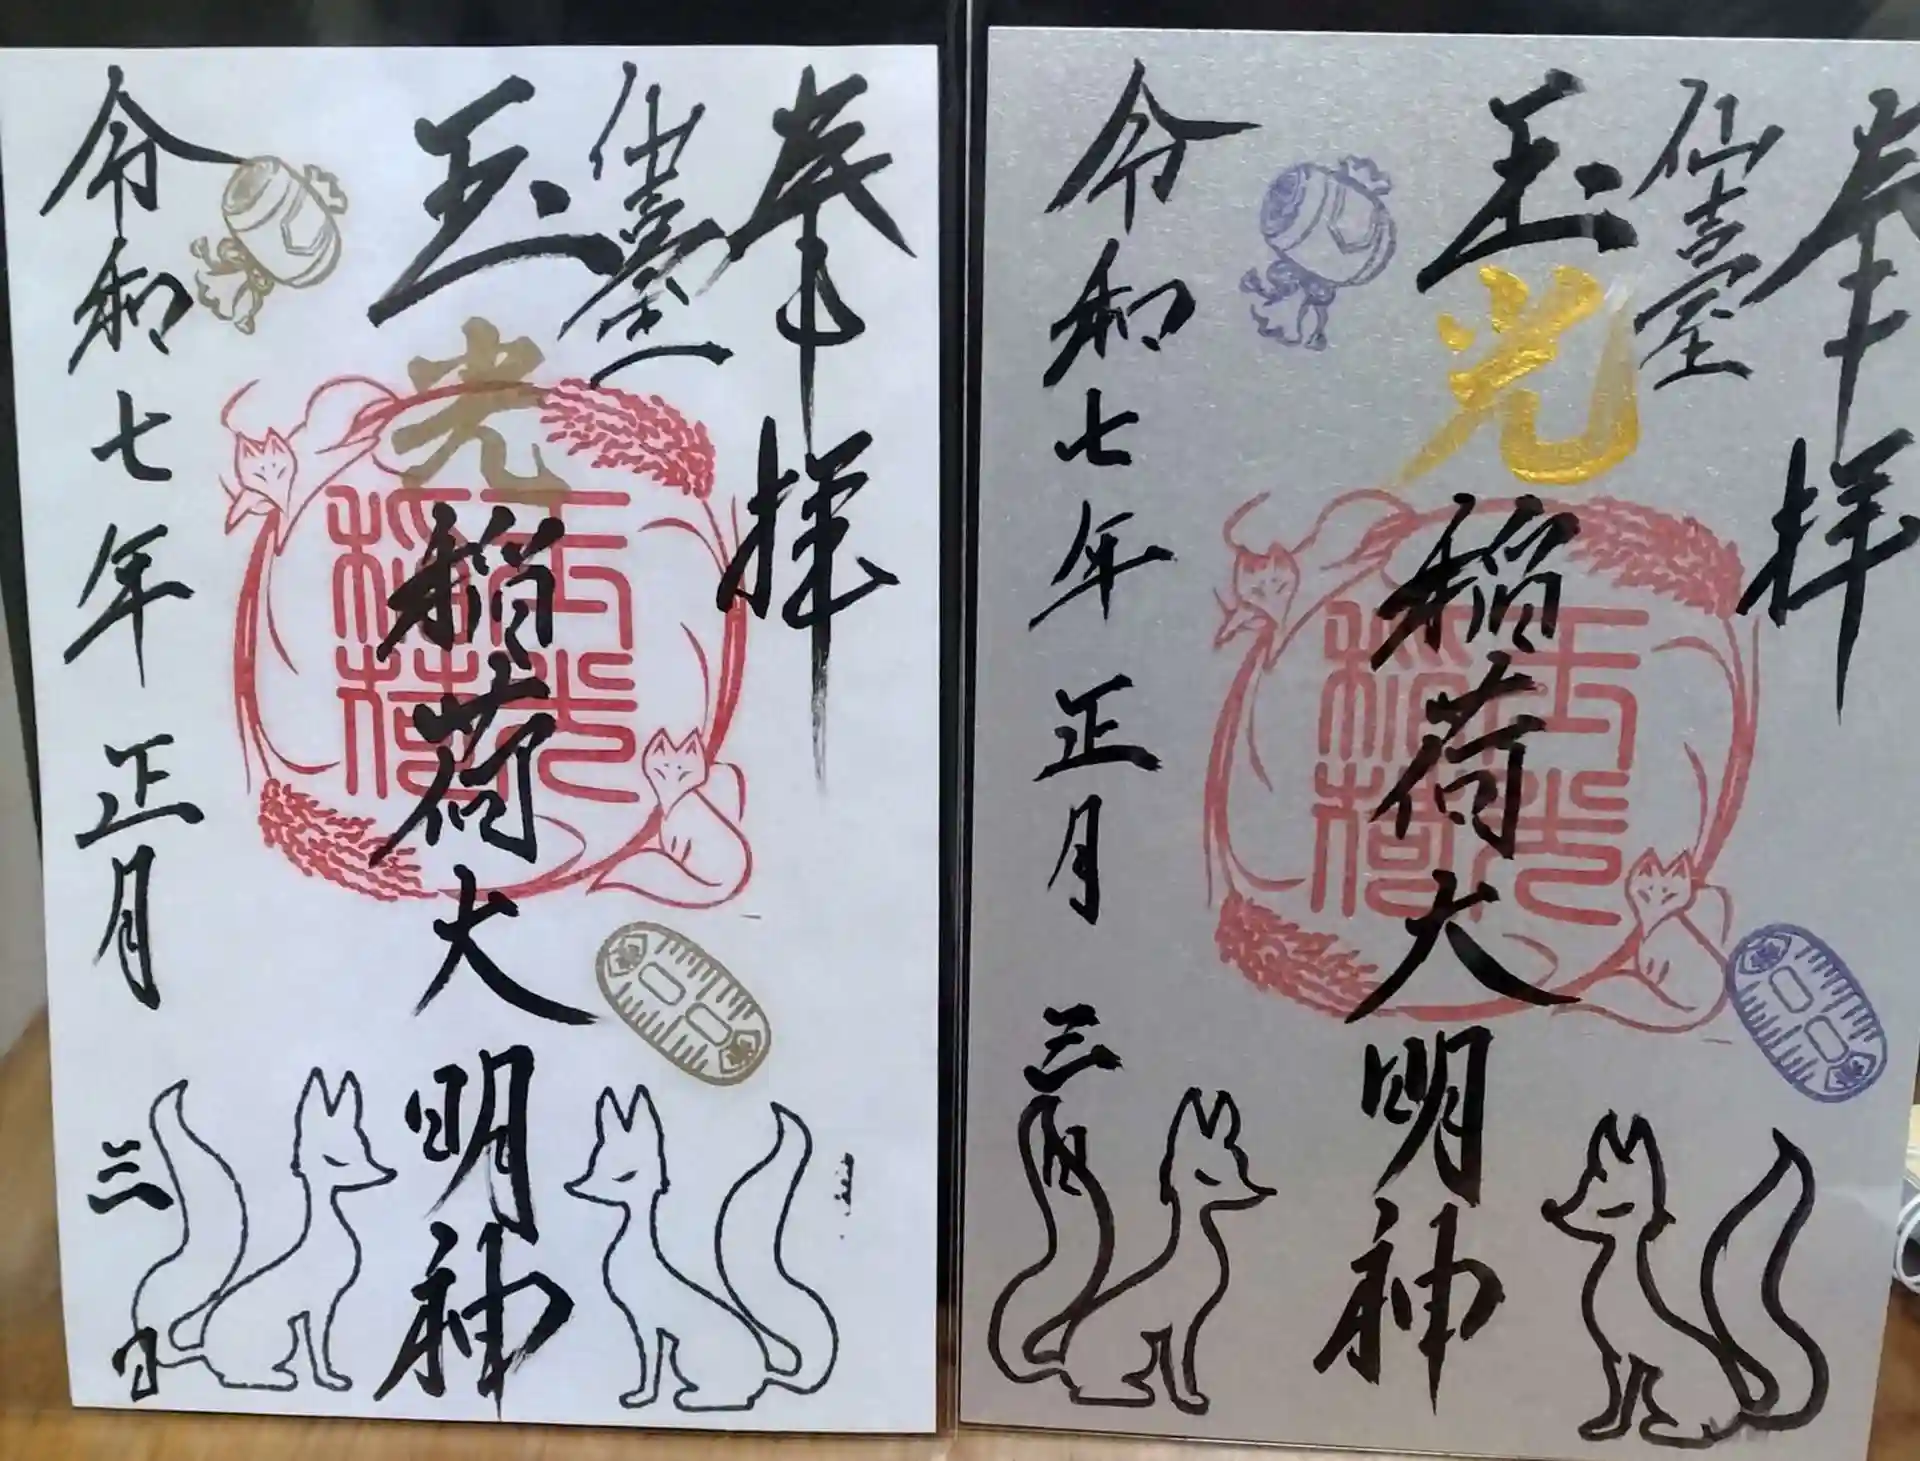 奉拝
仙臺
玉光稲荷大明神
玉光
稲荷
令和七年正月三日
奉拝
仙臺
玉光稲荷大明神
玉光
稲荷
令和七年正月三日